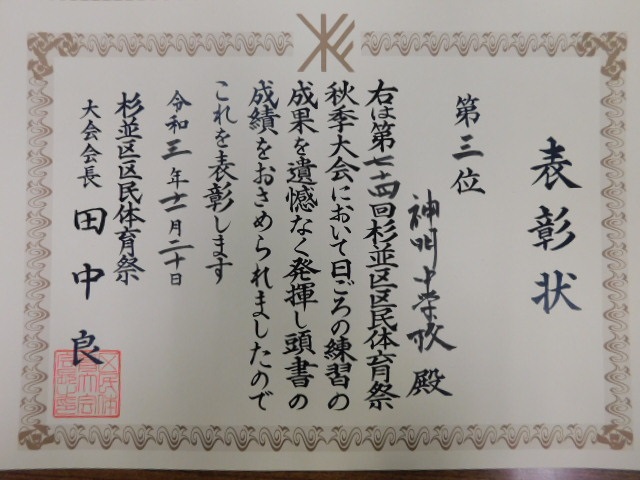 表彰状
第三位
神明中学校 殿
右は第七十四回杉並区区民体育祭
秋季大会において日ごろの練習の
成果を遺憾なく発揮し頭書の
成績をおさめられましたので
これを表彰します
令和三年十二月二十日
杉並区区民体育祭
大会会長 田中良